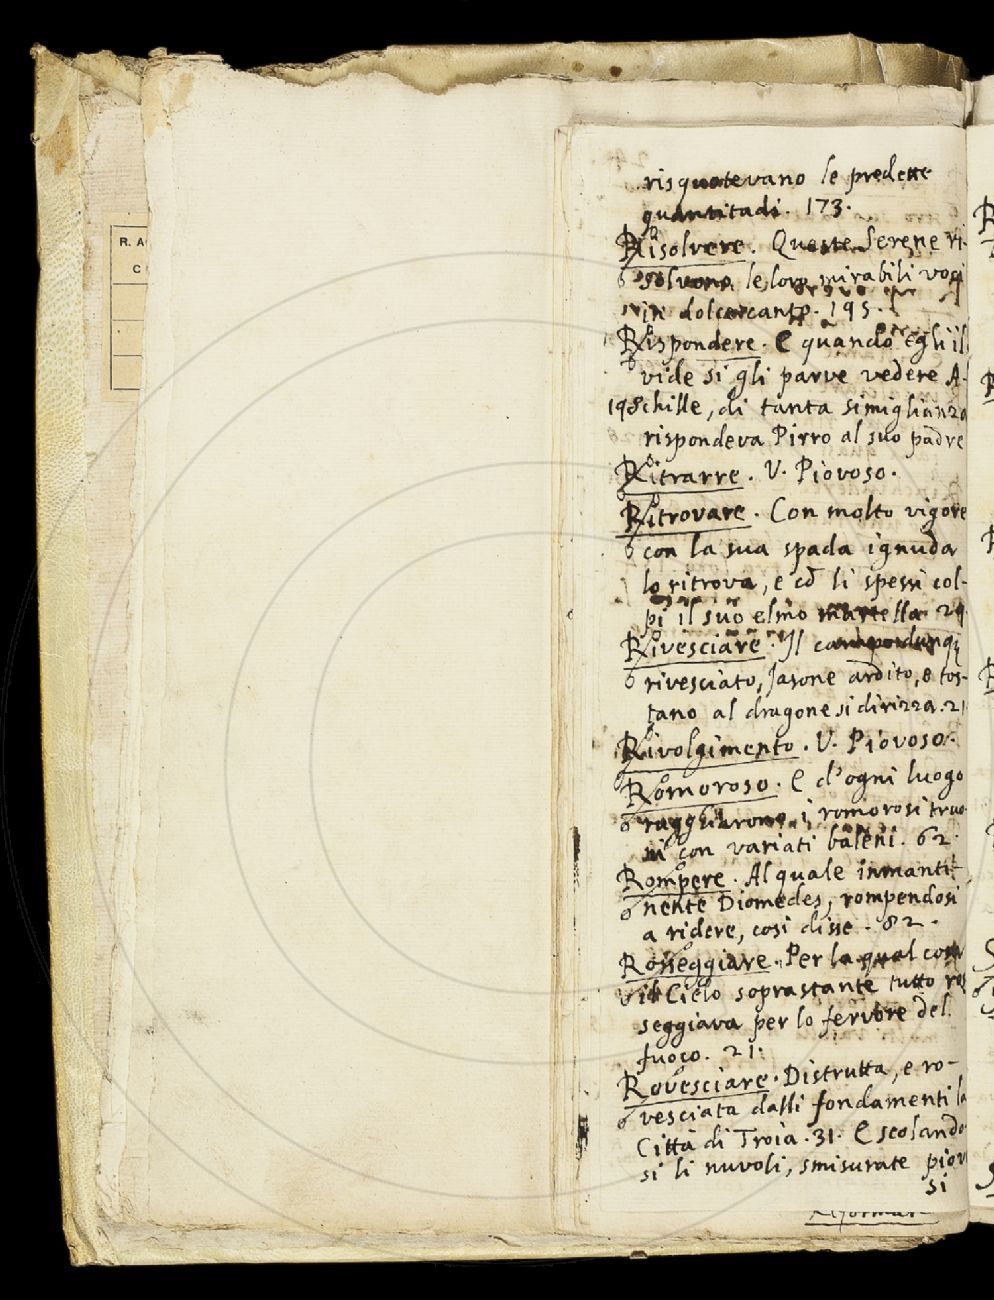 R. A
C
risquotevano le predette
quantitadi. 173.
Risolvere. Queste Serene ri-
solvono le loro mirabili voci
in dolce canto. 195.
Rispondere. E quando Egli il
vide si gli parve vedere A-
198 chille, di tanta simiglianza
rispondeva Pirro al suo padre
Ritrarre. V. Piovoso.
Ritrovare. Con molto vigore
con la sua spada ignuda
lo ritrova, e cō li spessi col-
pi il suo elmo martella 29
Rivesciare. Il
rivesciato, Jasone ardito, e tos-
tano al dragone si dirizza. 21
Rivolgimento. V. Piovoso.
Romoroso. E d'ogni luogo
ragghiarono i romorosi truo
ni con variati baleni. 62.
Rompere. Al quale inmanti-
nente Diomedes, rompendosi
a ridere, così disse. 82.
Rosseggiare. Per la qual cosa
il Cielo soprastante tutto ros
seggiava per lo fervore del
fuoco. 21.
Rovesciare. Distrutta, e ro-
vesciata dalli fondamenti la
Città di Troia. 31. E scolando
si li nuvoli, smisurate piov
si